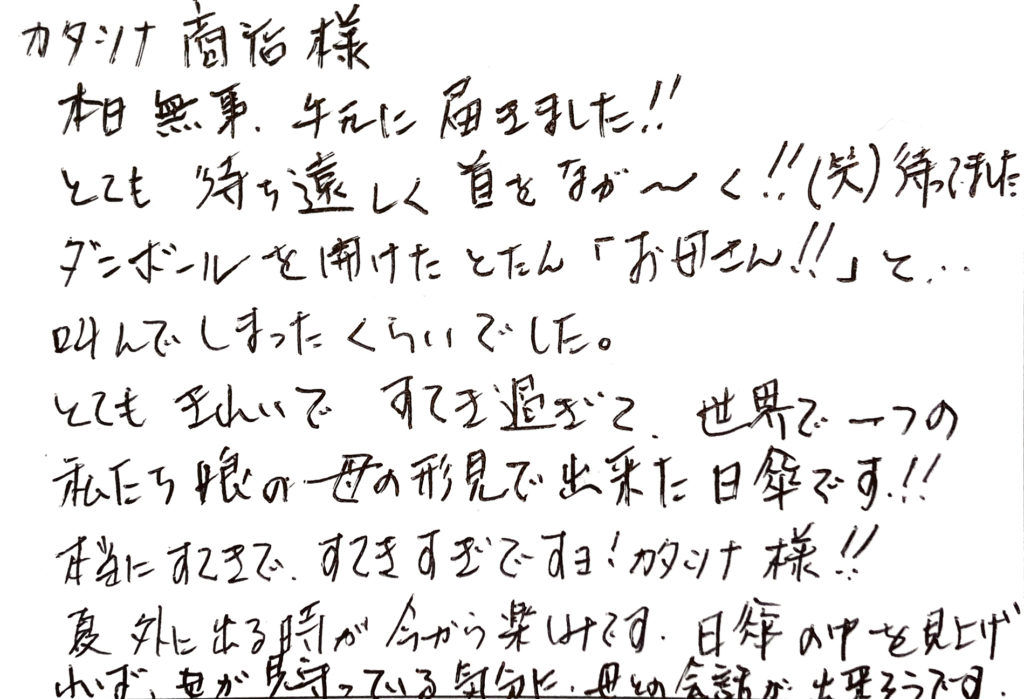 カタシナ 商店 様
本日 無事、午前に 届きました!!
とても 待ち遠しく 首を なが〜く!!(笑) 待ってました
ダンボールを開けた とたん「お母さん!!」と..
叫んでしまったくらいでした。
とても きれいで すてき過ぎて、世界で一つの
私たち娘の 母の形見で出来た 日傘です!!
本当に すてきで、すてき すぎですヨ! カタシナ 様!!
夏 外に出る時が 今から 楽しみです、日傘の中を見上げ
れば、母が 見守っている気分に、母との会話が 出来そうです、